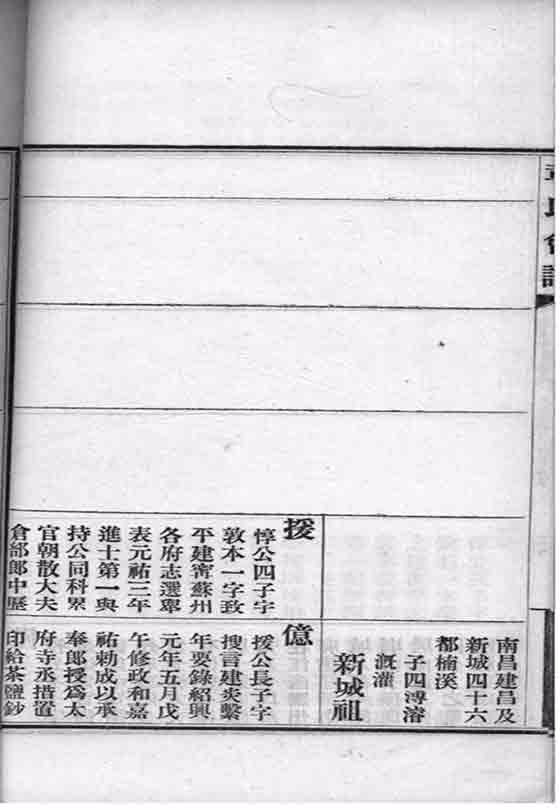 章氏會譜
南昌建昌及
新城四十六
都楠溪
子四溥濬
溉灌
新城祖
援
惇公四子字
敦本一字致
平建寧蘇州
各府志選舉
表元祐三年
進士第一與
持公同科累
官朝散大夫
倉部郎中歷
億
援公長子字
搜言建炎繫
年要錄紹興
元年五月戊
午修政和嘉
祐勅成以承
奉郎授爲太
府寺丞措置
印給茶鹽鈔